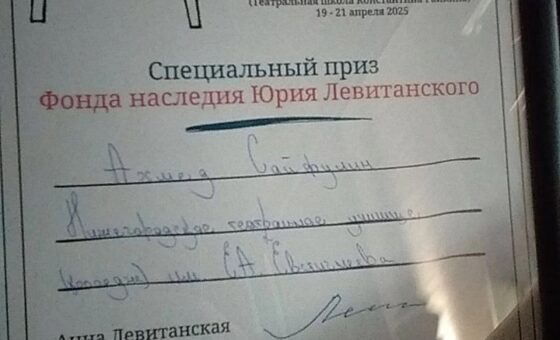 (Театральная школа Константина Райкина)
19 - 21 апреля 2025
Специальный приз
Фонда наследия Юрия Левитанского
Ахмед Сайфулин
Нижегородское театральное училище
(колледж) им. Е.А. Евстигнеева
Анна Левитанская